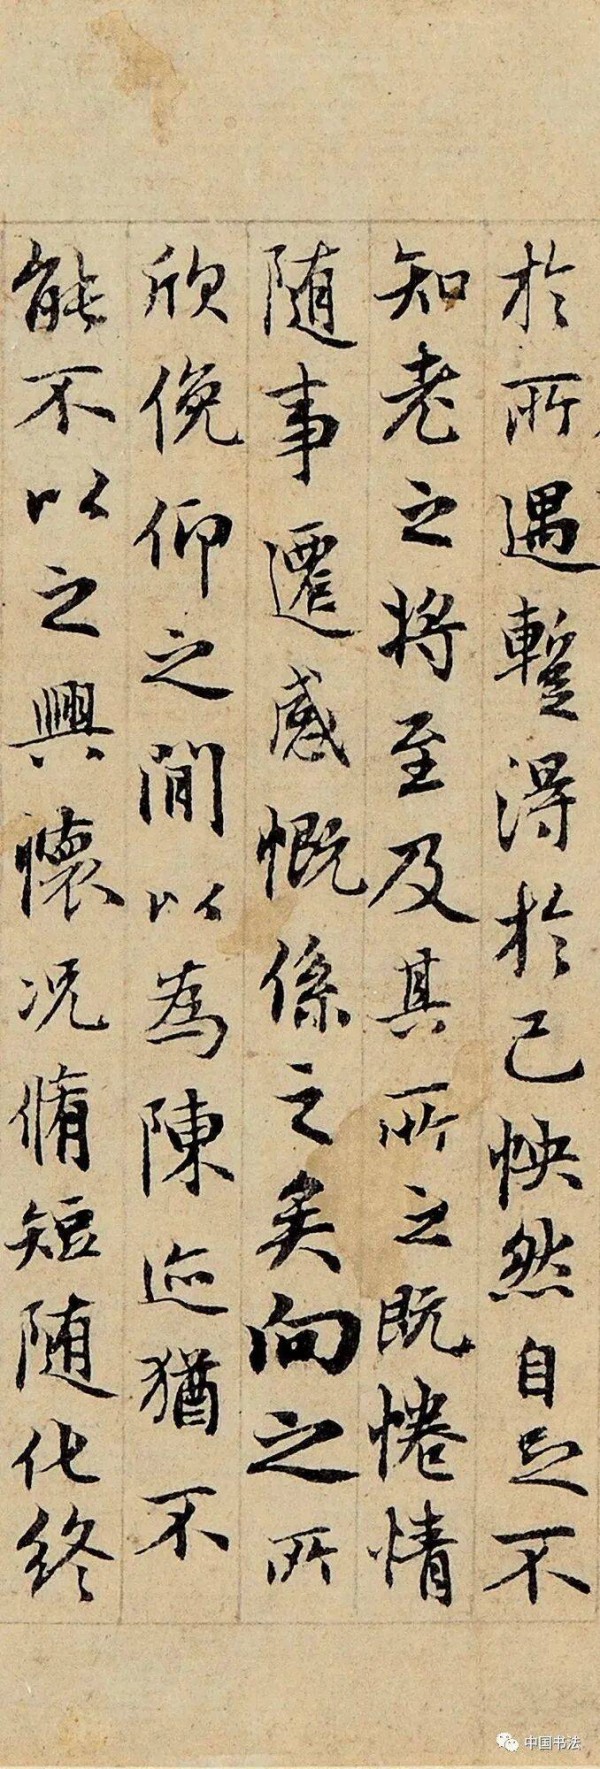 於所遇暫得於己怏然自足不
知老之將至及其所之既惓情
隨事遷感慨係之矣向之所
欣俛仰之閒以為陳迹猶不
能不以之興懷況脩短隨化終
中国书法